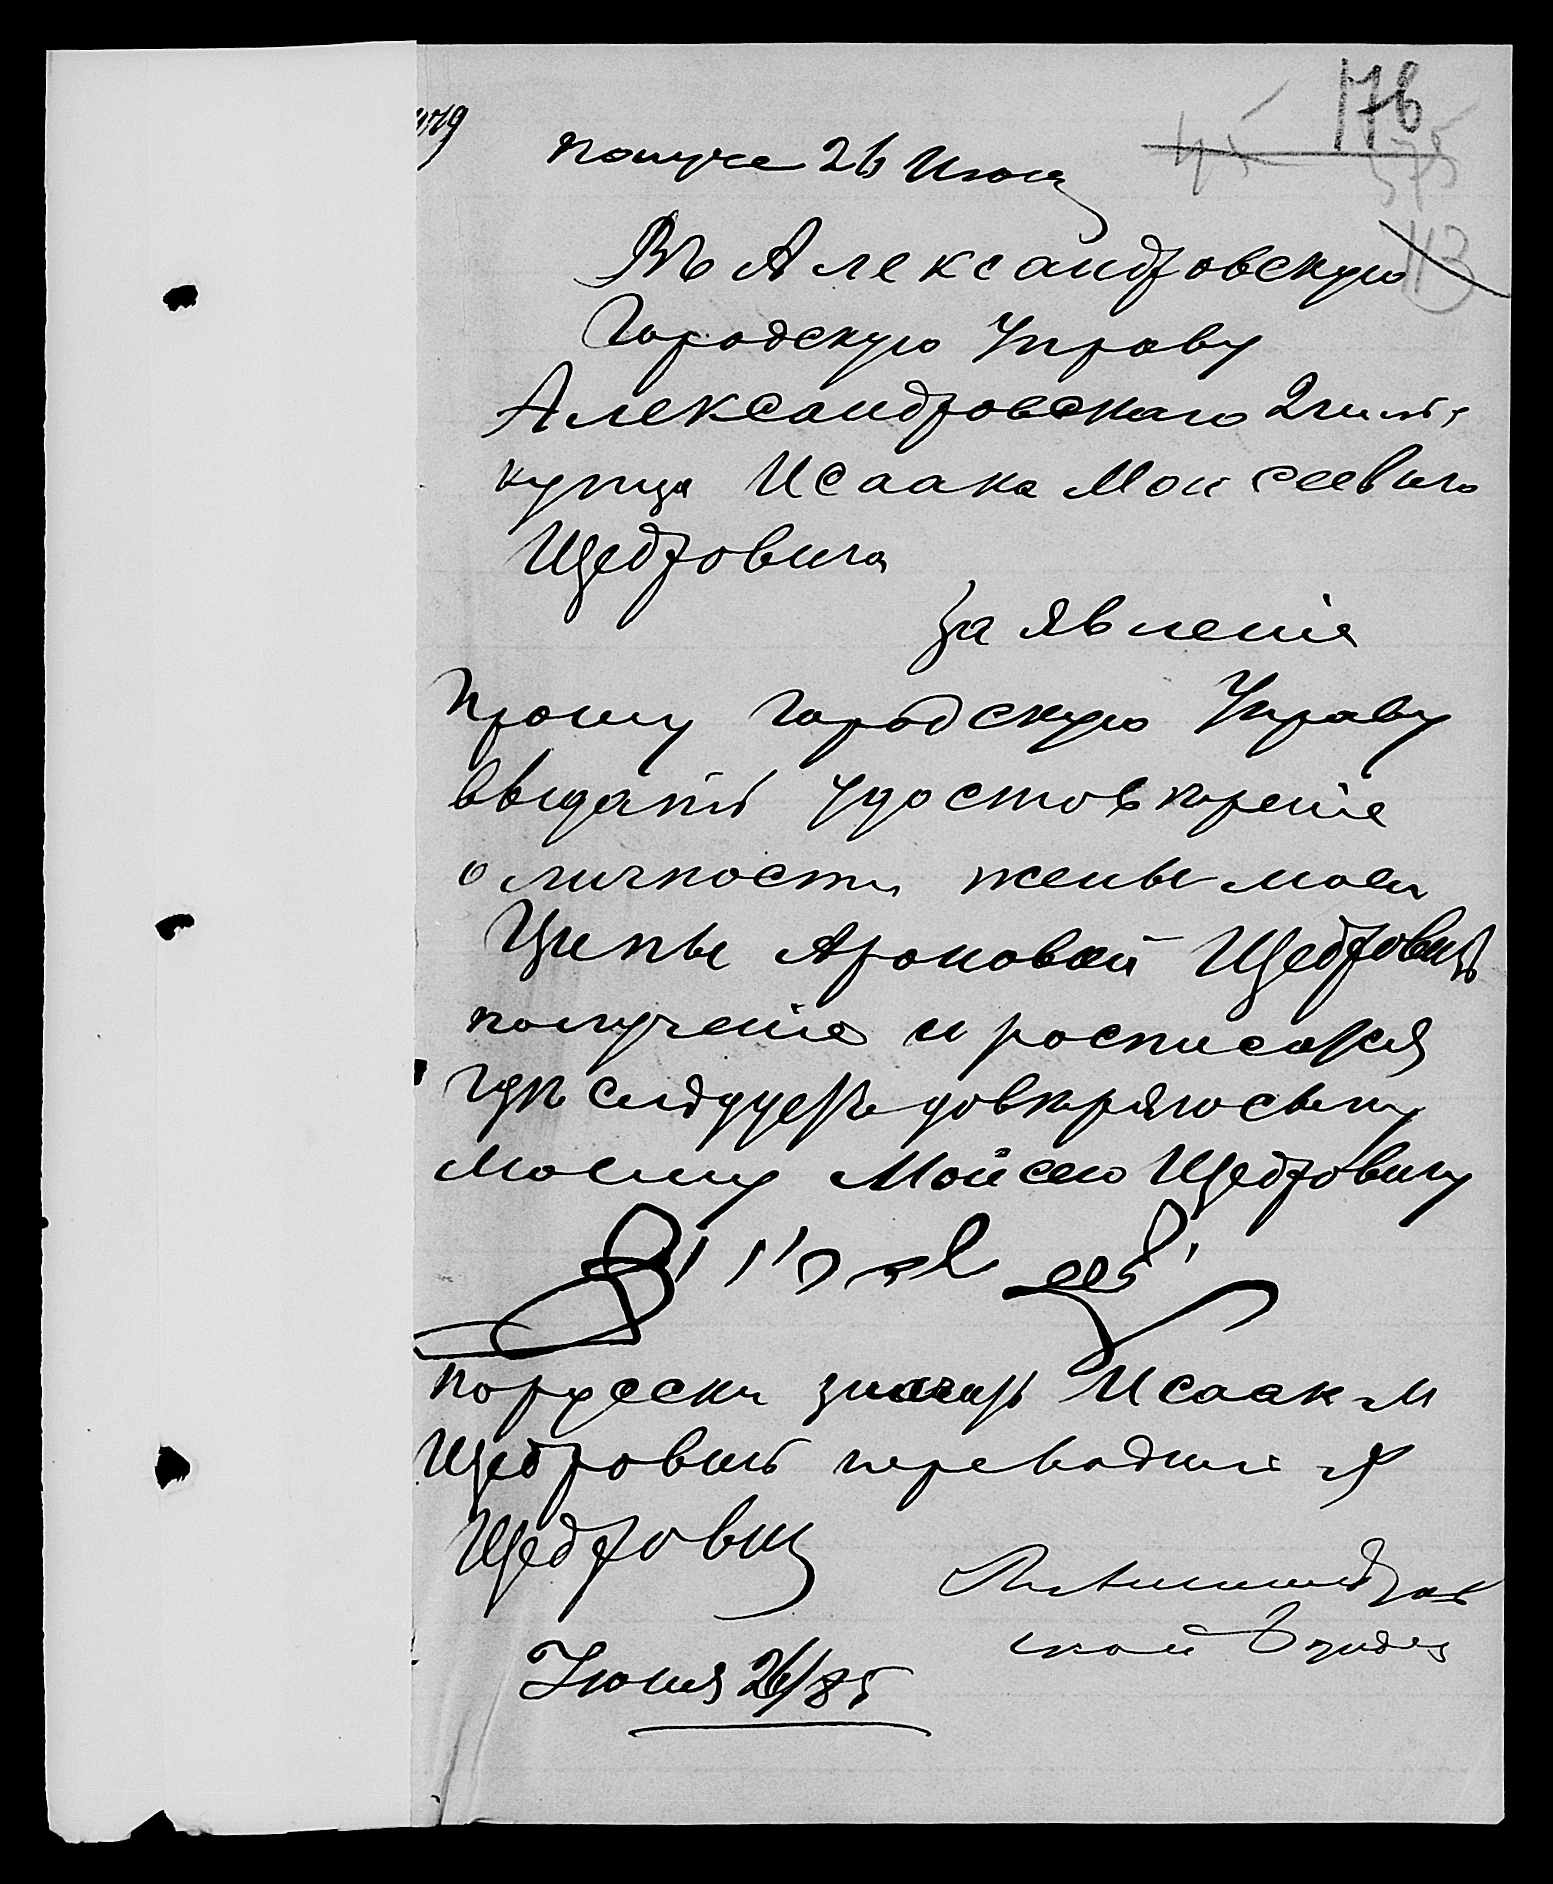 176
45
575
113
получе 26 Июня
Въ Александровскую
Городскую Управу
Александровскаго 2 гильд
купца Исаака Моисеевича
Щедровича
заявленіе
Прошу Городскую Управу
выдать удостовѣреніе
о личности жены моей
Ципы Ароновой Щедровичъ
полученіе и росписатся
гдѣ следуетъ довѣряю сыну
моему Мойсею Щедровичу
порусски значитъ Исаакъ М
Щедровичъ переводилъ
Щедровиц
Июня 26/85